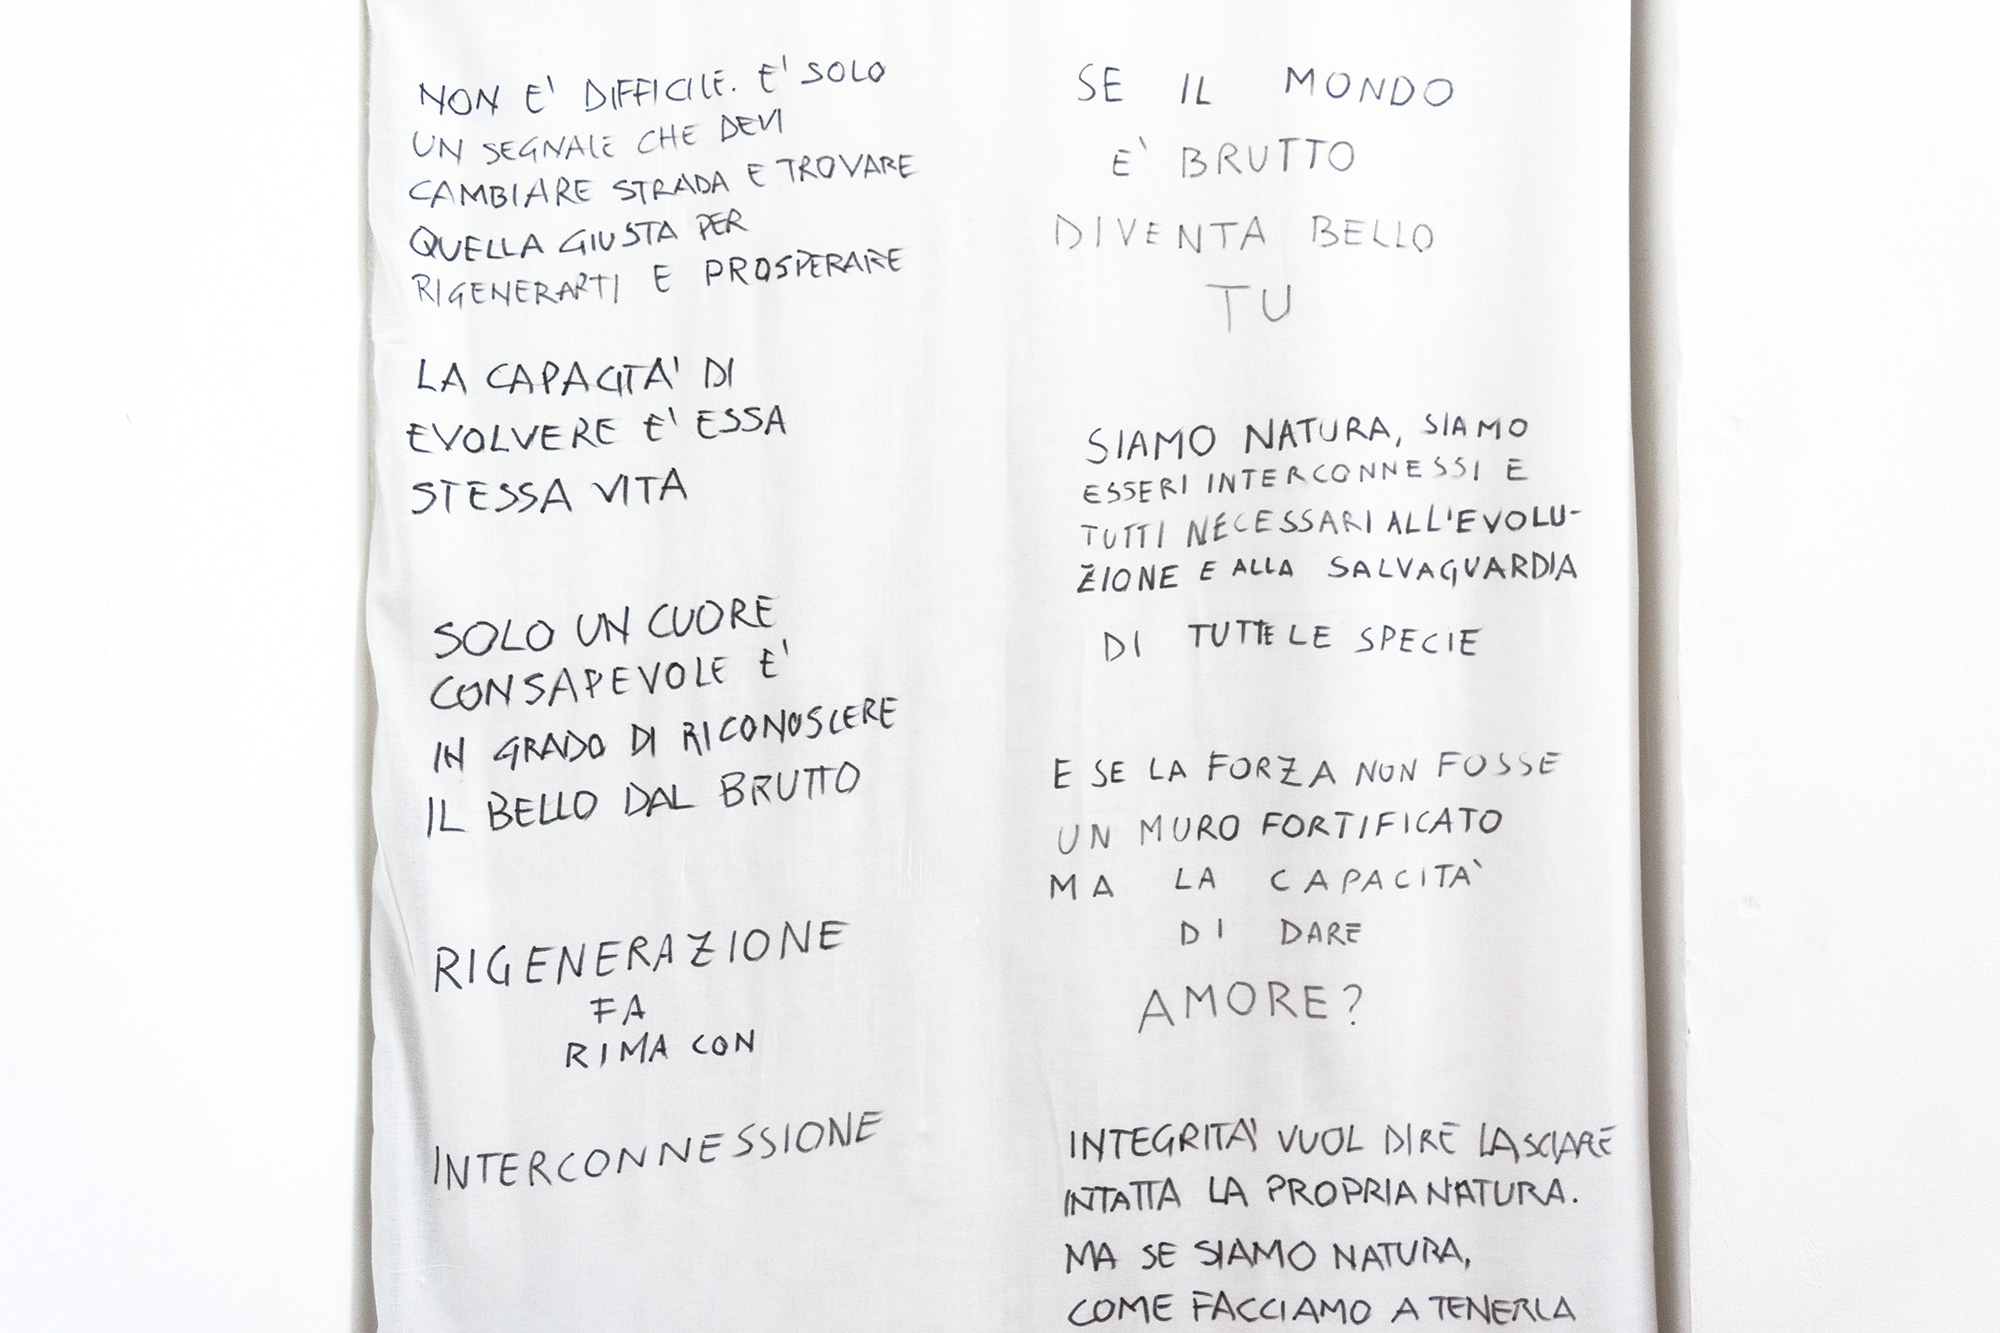 NON E' DIFFICILE. E' SOLO
UN SEGNALE CHE DEVI
CAMBIARE STRADA E TROVARE
QUELLA GIUSTA PER
RIGENERARTI E PROSPERARE
LA CAPACITA' DI
EVOLVERE E' ESSA
STESSA VITA
SOLO UN CUORE
CONSAPEVOLE E'
IN GRADO DI RICONOSCERE
IL BELLO DAL BRUTTO
RIGENERAZIONE
FA
RIMA CON
INTERCONNESSIONE
SE IL MONDO
E' BRUTTO
DIVENTA BELLO
TU
SIAMO NATURA, SIAMO
ESSERI INTERCONNESSI E
TUTTI NECESSARI ALL'EVOLU-
ZIONE E ALLA SALVAGUARDIA
DI TUTTE LE SPECIE
E SE LA FORZA NON FOSSE
UN MURO FORTIFICATO
MA LA CAPACITA'
DI DARE
AMORE?
INTEGRITA' VUOL DIRE LASCIARE
INTATTA LA PROPRIA NATURA.
MA SE SIAMO NATURA,
COME FACCIAMO A TENERLA